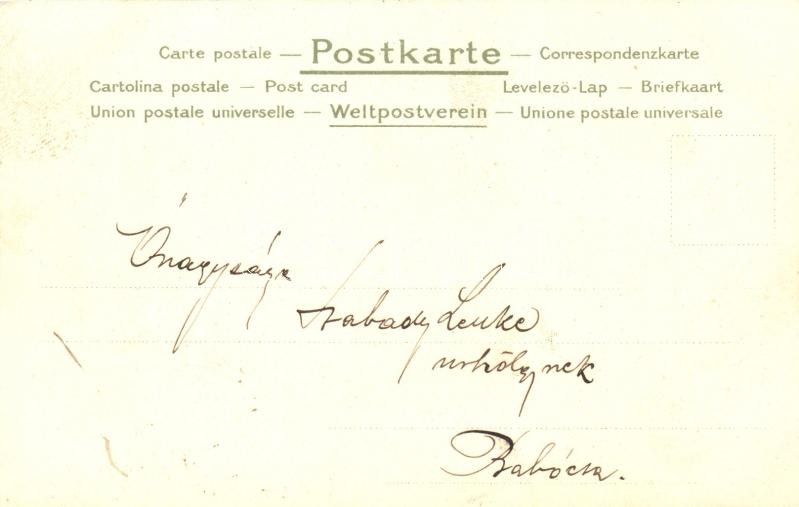 Carte postale — Postkarte — Correspondenzkarte
Cartolina postale — Post card Levelezö-Lap — Briefkaart
Union postale universelle — Weltpostverein — Unione postale universale
Őnagysága
Szabady Lenke
urhölgynek
Babócsa.